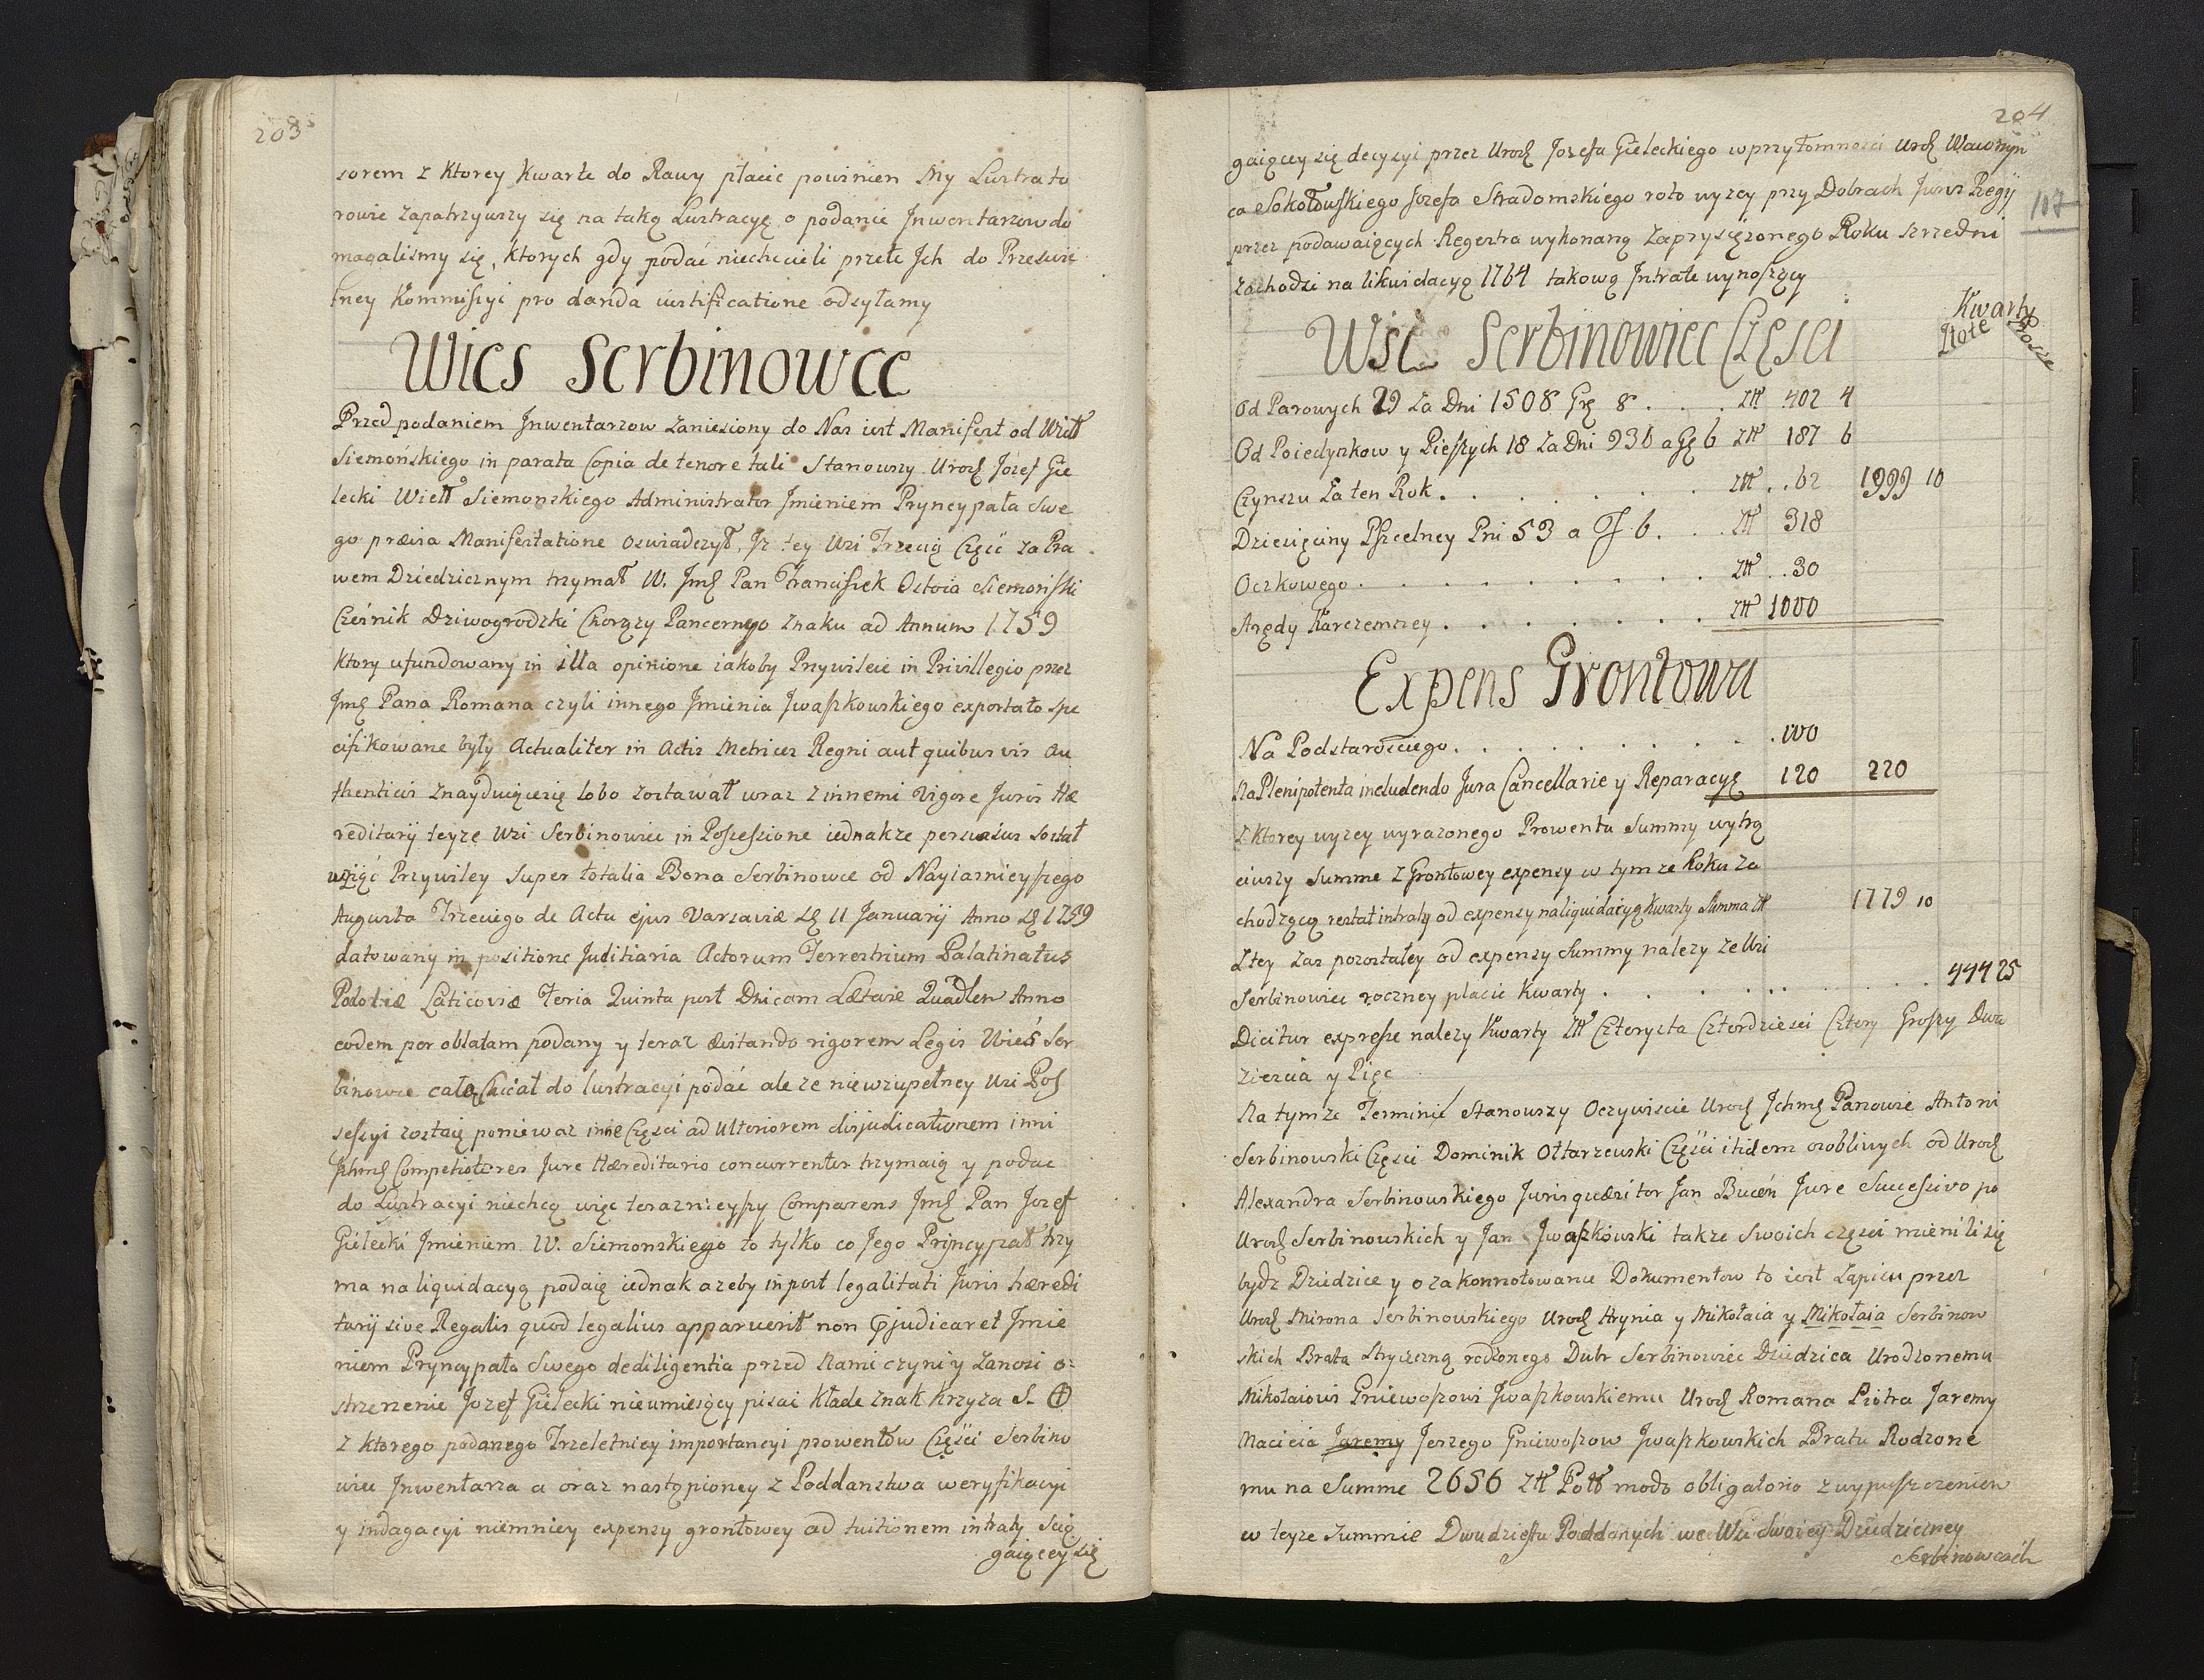 203
sorem z Ktorey Kwarte do Rawy płacic powinien My Lustrato
rowie zapatrzywszy się na taką Lustracyę o podanie Inwentarzow do
magalismy się, Ktorych gdy podać niechcieli przeto Ich do Przeswie
tney Kommissyi pro danda iustificatione odsyłamy
Wies Serbinowce
Przed podaniem Inwentarzow zaniesiony do Nas iest Manifest od Wiell
Siemońskiego in parata Copia de tenore tali Stanowszy Urodz Józef Gie
lecki Wiell Siemonskiego Administrator Imieniem Pryncypała Swe
go prævia Manifestatione oswiadczył, Iz tey Wsi Trzecią Część za Pra
wem Dziedzicznym trzymał W. Imć Pan Franciszek Ostoia Siemoński
Cześnik Dziwogrodzki Chorąży Pancernego Znaku ad Annum 1759
Ktory ufundowany in illa opinione iakoby Przywileie in Privillegio przez
Imć Pana Romana czyli innego Imienia Iwaszkowskiego exportato spe
cifikowane były Actualiter in Actis Metrices Regni aut quibus vis au
thenticis znayduiące się lobo zostawał wraz z innemi vigore Juris Hæ
reditarij teyze Wsi Serbinowiec in Possessione iednakze persuasus został
wziąć Przywiley super totalia Bona Serbinowce od Nayiasnieyszego
Augusta Trzeciego de Actu ejus Varsaviæ 11 Januarij Anno 1759
datowany in positione Juditiaria Actorum Terrestrium Palatinatus
Podoliæ Laticoviæ Feria Quinta post Dnicam Lætare Quadlem Anno
eodem per oblatam podany y teraz evitando rigorem Legis Wieś Ser
binowce całą Chciał do lustracyi podać ale ze nie w zupełney Wsi Pos
sessyi zostaię poniewaz inne Części ad ulteriorem disjudicationem inni
Ichmć Competitores Jure Hæreditario concurrentes trzymaią y podac
do Lustracyi niechcą więc teraznieyszy Comparens Imć Pan Jozef
Gielecki Imieniem W. Siemonskiego to tylko co Jego Pryncypał trzy
ma na liquidacyą podaię iednak azeby in post legalitati Juris hæredi
tarij sive Regalis quod legalius apparuerit non præjudicaret Imie
niem Pryncypała Swego de diligentia przed Nami czyni y zanosi o=
strzezenie Jozef Gielecki nieumieiący pisac Kłade znak Krzyza S.
z ktorego podanego Trzeletniey importancyi prowentow Części Serbino
wiec Inwentarza a oraz nastąpioney z Poddanstwa weryfikacyi
y indagacyi niemniey expensy grontowey ad tuitionem intraty scią
gaiącey się
204
107
gaiącey się decyzyi przez Urodz Jozefa Gieleckiego w przytomnosci Urodz Wawrzyn
ca Sokołowskiego Jozefa Stradomskiego roto wyzey przy Dobrach Juris Regij
przez podawaiących Regestra wykonaną zaprysięzonego Roku szrzedni
zachodzi na likwidacyą 1764 takową Intrate wynoszący
Kwarty
Złote Grosze
Wsi Serbinowiec Części
Od Parowych 29 za Dni 1508 Gr 8 . . . Złł 402 4
Od Poiedynkow y Pieszych 18 Za Dni 936 a Gr 6 Złł 187 6
Czynszu Za ten Rok . . . . . . . Złł . . 62 1999 10
Dziesięciny Pszcelney Pni 53 a Zł 6 . . . Złł 318
Oczkowego . . . . . . . . . Złł . . 30
Arędy Karczemney . . . . . . . Złł 1000
Expens Grontowa
Na Podstarosciego . . . . . . . . . 100
Na Plenipotenta includendo Jura Cancellarie y Reparacyę 120 220
z Ktorey wyzey wyrazonego Prowentu Summy wytrą
ciwszy Summe z Grontowey expensy w tymze Roku za
chodzącą restat intraty od expensy na liquidacyą Kwarty Summa Złł 1779 10
z tey zas pozostałey od expensy Summy nalezy ze Wsi
Serbinowiec roczney płacic Kwarty . . . . . . . . 444 25
Dicitur expresse nalezy Kwarty Złł Czterysta Czterdziesci Cztery Groszy Dwa
ziescia y Pięc
Na tymze Terminie Stanowszy Oczywiscie Urodz Ichmć Panowie Antoni
Serbinowski Części Dominik Ołtarzewski Części itidem osobliwych od Urodz
Alexandra Serbinowskiego Juris quæsitor Jan Bucéń Jure Successivo po
Urodz Serbinowskich y Jan Iwaszkowski takze Swoich częsci mienili się
bydz Dziedzice y o zakonnotowanie Dokumentow to iest Zapisu przez
Urodz Mirona Serbinowskiego Urodz Hrynia y Mikołaia y Mikołaia Serbinow
skich Brata stryieczną rodzonego Dubr Serbinowiec Dziedzica Urodzonemu
Mikołaiowi Gniewoszowi Iwaszkowskiemu Urodz Romana Piotra Jaremy
Macieia Jaremy Jerzego Gniewoszow Iwaszkowskich Bratu Rodzone
mu na Summe 2656 Złł Poll modo obligatorio z wypuszczeniem
w teyze Summie Dwudziestu Poddanych we Wsi Swoiey Dziedziczney
Serbinowcach